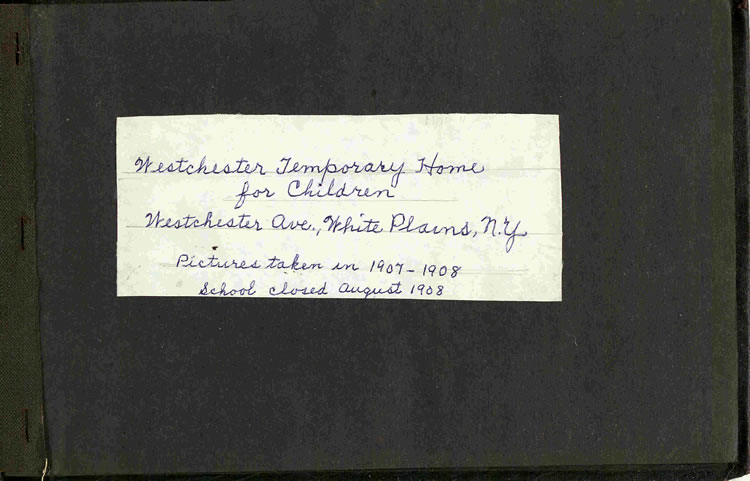 Westchester Temporary Home
for Children
Westchester Ave., White Plains, N.Y.
Pictures taken in 1907-1908
School closed August 1908